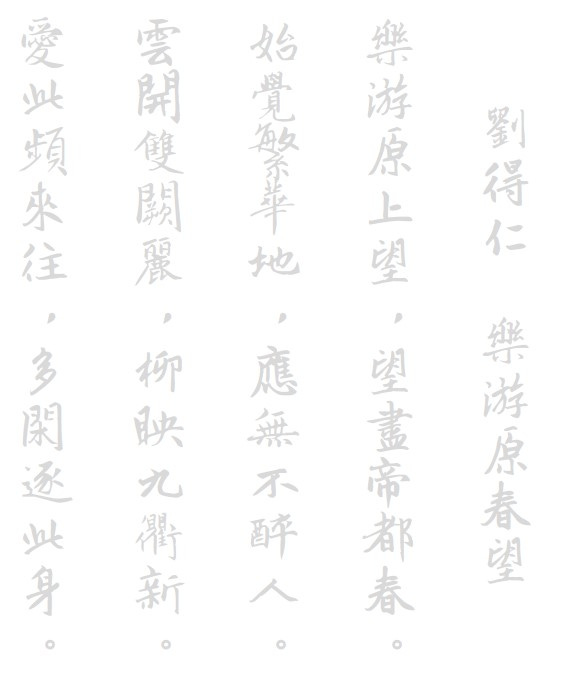 劉得仁 樂游原春望
樂游原上望，望盡帝都春。
始覺繁華地，應無不醉人。
雲開雙闕麗，柳映九衢新。
愛此頻來往，多閑逐此身。